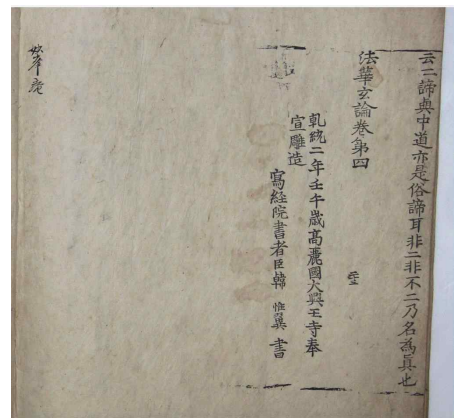 云二諦與中道亦是俗諦耳非二非不二乃名為眞也
法華玄論卷第四
乹統二年壬午歲高麗國大興王寺奉
宣雕造
寫經院書者臣韓 惟翼 書